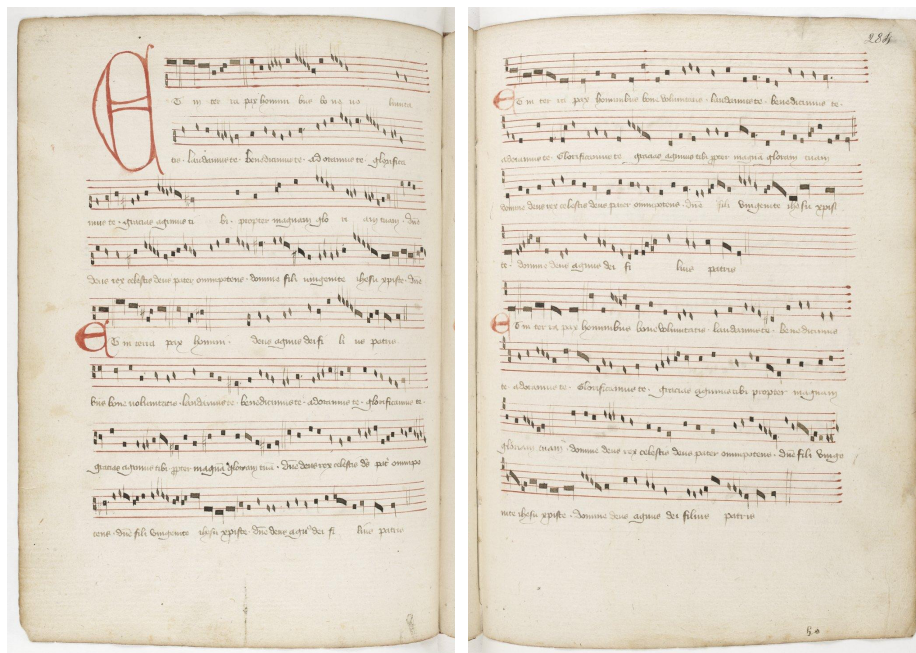 Et in ter ra pax homini bus bo ne vo lunta
tis · laudamus te · benedicimus te · adoramus te · glorifica
mus te · gracias agimus ti bi · propter magnam glo ri am tuam · dne
deus rex celestis deus pater omnipotens · domine fili unigenite ihesu xpiste · dne
Et in terra pax homini · deus agnus dei fi li us patris
bus bone voluntatis · laudamus te · benedicimus te · adoramus te · glorificamus te ·
gracias agimus tibi ppter magna gloriam tua · dne deus rex celestis ds pat omnipo
tens · dne fili unigenite ihesu xpiste · dne deus agn dei fi lius patris
284
Et in ter ra pax hominibus bone voluntatis · laudamus te · benedicimus te ·
adoramus te · Glorificamus te gracias agimus tibi ppter magna gloriam tuam
domine deus rex celestis deus pater omnipotens · dne fili unigenite ihesu xpist
te · domine deus agnus dei fi lius patris
Et in ter ra pax hominibus bone voluntatis · laudamus te · benedicimus
te · adoramus te · Glorificamus te · gracias agimus tibi propter magnam
gloriam tuam · domine deus rex celestis deus pater omnipotens · dne fili unige
nite ihesu xpiste · domine deus agnus dei filius patris